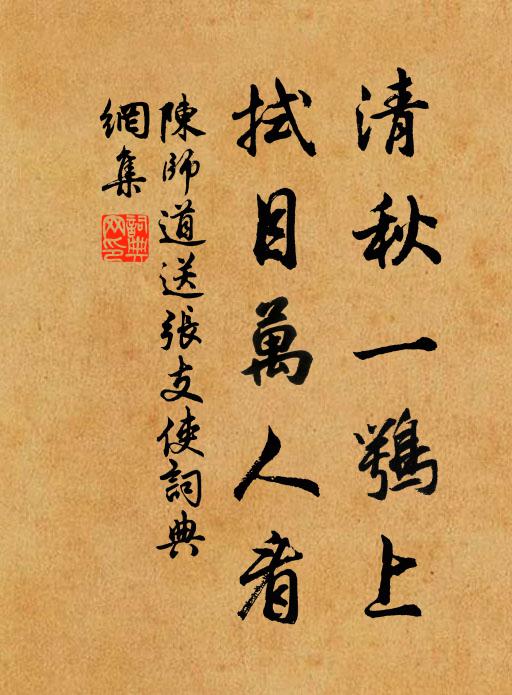 清秋一鶚上
拭目萬人看
陳師道送張支使詞典
網集
詞典網印